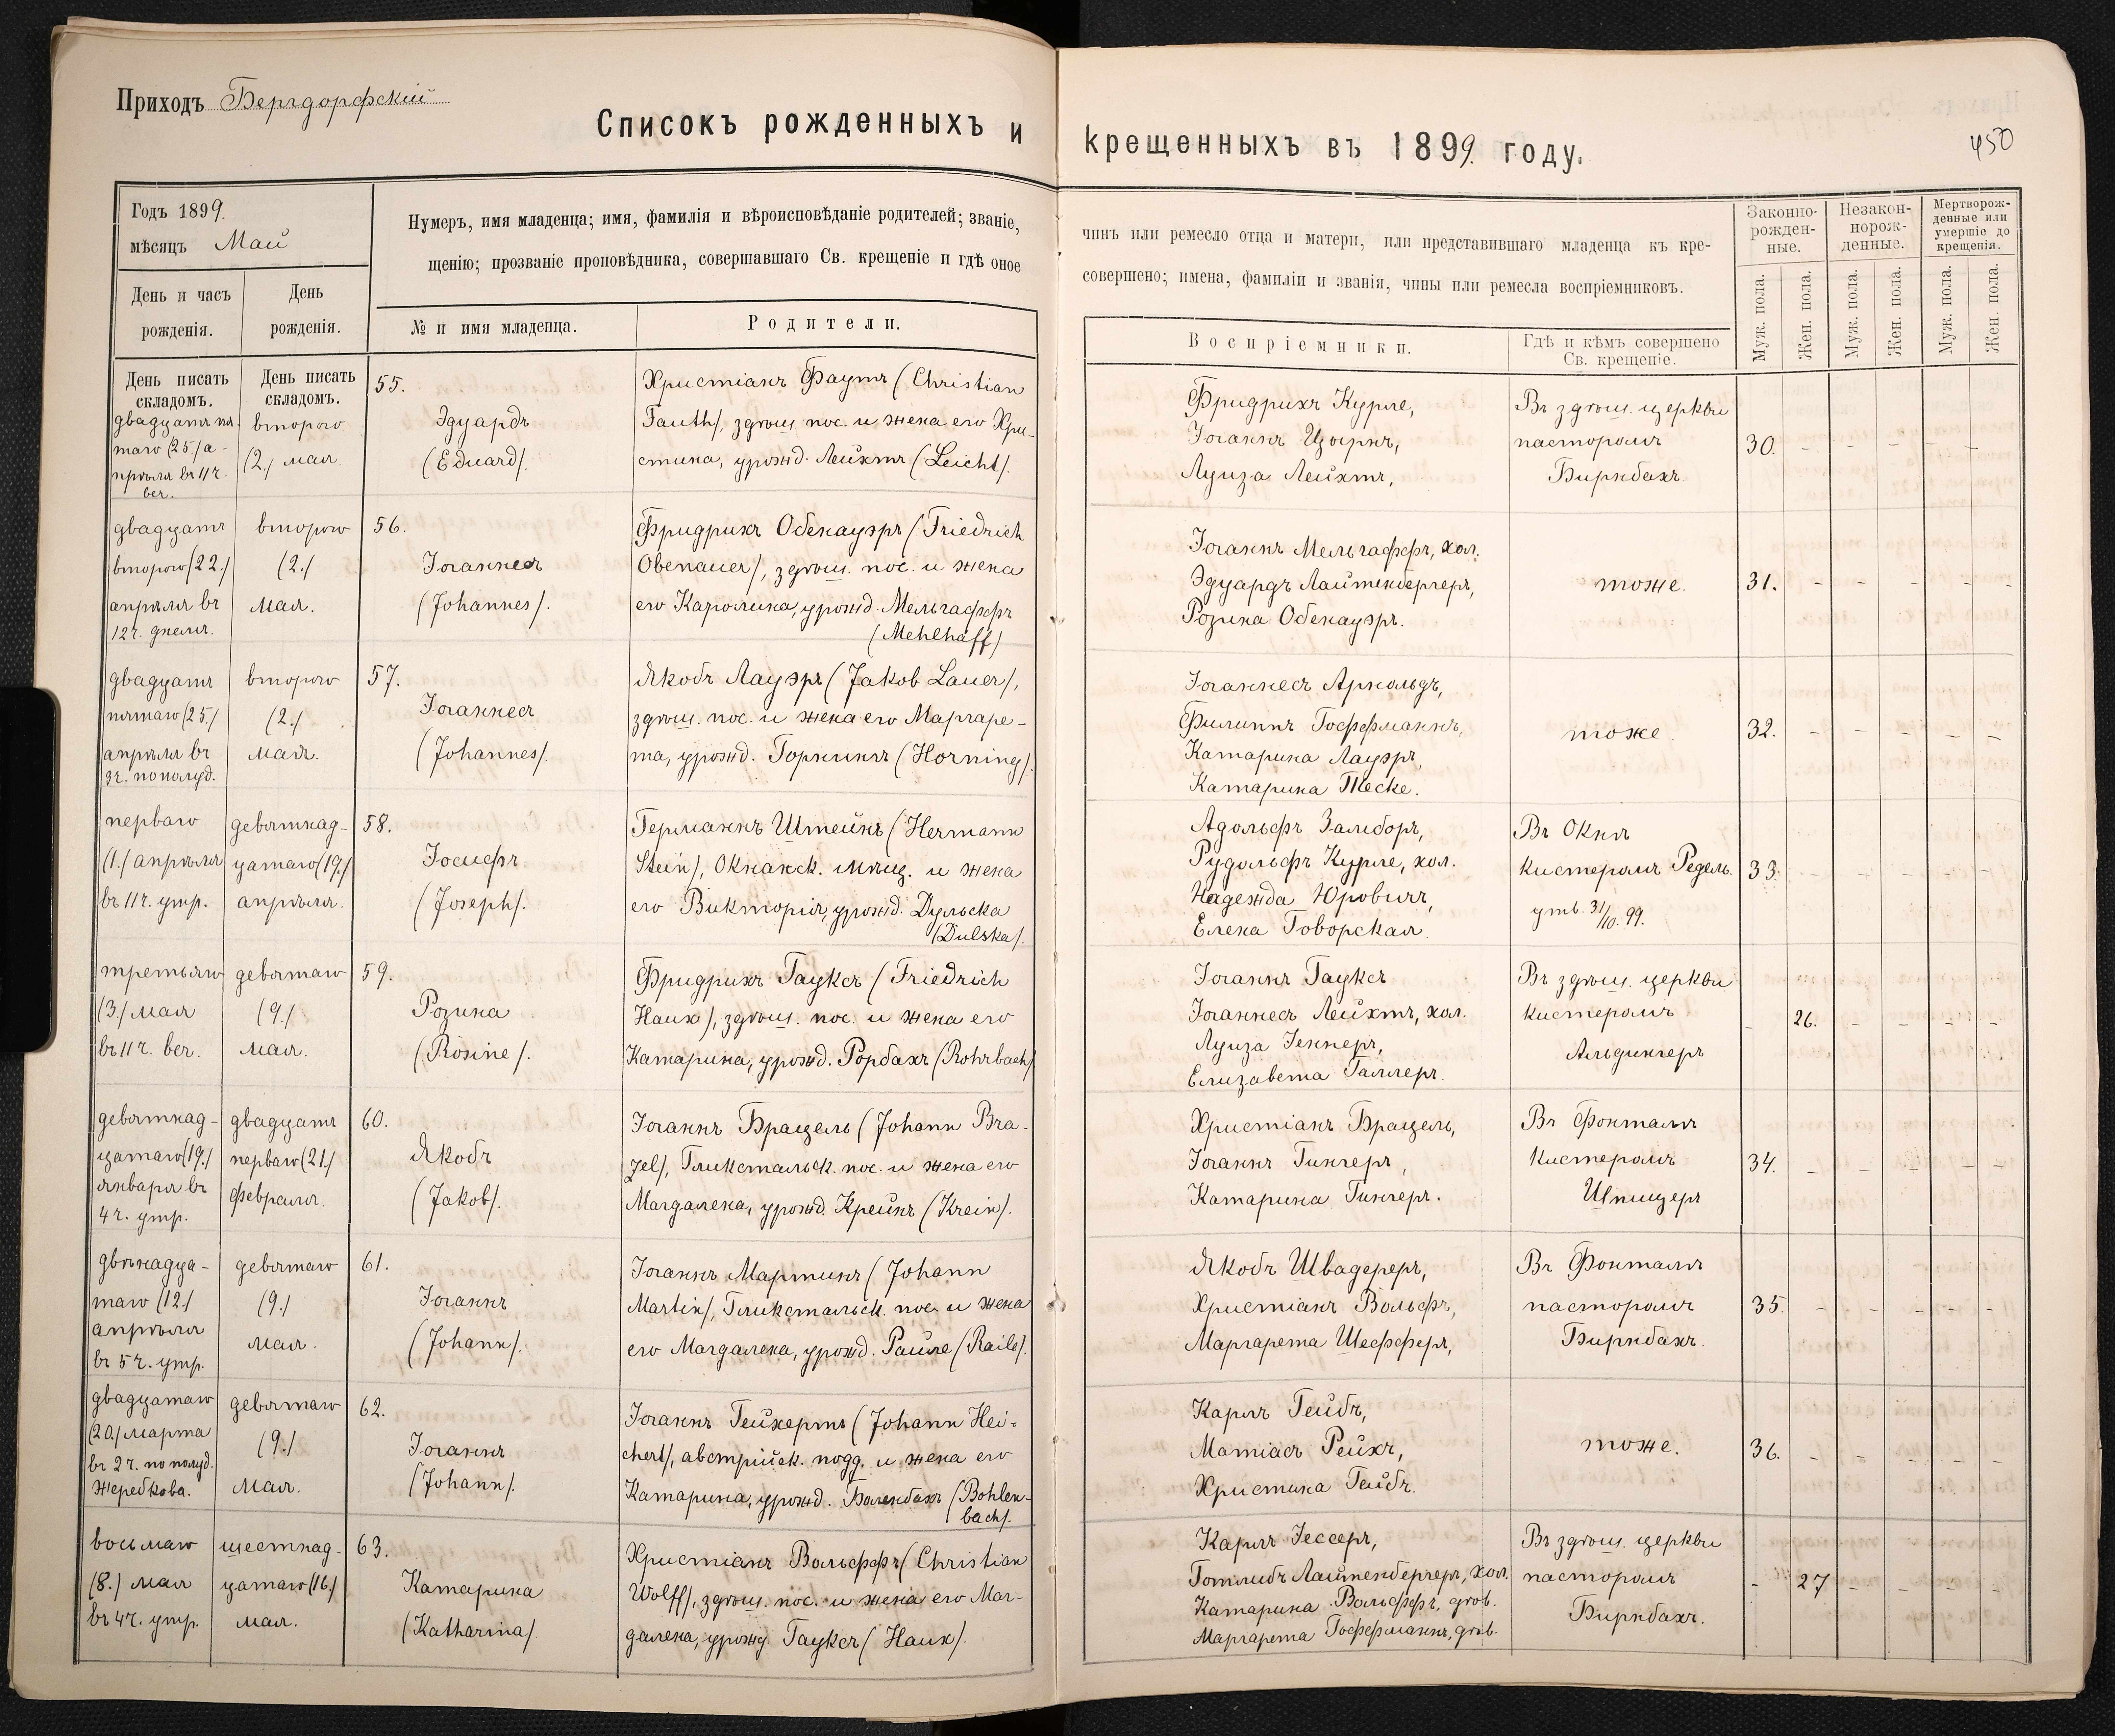 Приходъ Бергдорфскій
Списокъ рожденныхъ и крещенныхъ въ 1899. году.
450
Годъ 1899.
мѣсяцъ Май
Нумеръ, имя младенца; имя, фамилія и вѣроисповѣданіе родителей; званіе,
чинъ или ремесло отца и матери, или представившаго младенца къ кре-
щенію; прозваніе проповѣдника, совершавшаго Св. крещеніе и гдѣ оное
совершено; имена, фамиліи и званія, чины или ремесла воспріемниковъ.
Законно-
рожден-
ные.
Незакон-
норож-
денные.
Мертворож-
денные или
умершіе до
крещенія.
День и часъ
рожденія.
День
рожденія.
№ и имя младенца.
Родители.
Воспріемники.
Гдѣ и кѣмъ совершено
Св. крещеніе.
Муж. пола.
Жен. пола.
Муж. пола.
Жен. пола.
Муж. пола.
Жен. пола.
День писать
складомъ.
День писать
складомъ.
двадцать пя-
таго (25.) а-
прѣля въ 11 ч.
веч.
второго
(2.) мая
55.
Эдуардъ
(Eduard).
Христіанъ Фаутъ (Christian
Fauth), здѣш. пос. и жена его Хри-
стина, урожд. Лейхтъ (Leicht).
Фридрихъ Курле,
Іоганнъ Цюрнъ,
Луиза Лейхтъ,
Въ здѣш. церкви
пасторомъ
Бирнбахъ.
30. – – – –
двадцать
второго (22.)
апрѣля въ
12 ч. днемъ.
второго
(2.)
мая.
56.
Іоганнесъ
(Johannes).
Фридрихъ Обенауэръ (Friedrich
Obenauer), здѣш. пос. и жена
его Каролина, урожд. Мельгаффъ
(Mehlhaff)
Іоганнъ Мельгаффъ, хол.
Эдуардъ Лайтенбергеръ,
Розина Обенауэръ.
тоже.
31. – – – – –
двадцать
пятаго (25.)
апрѣля въ
3 ч. по полуд.
второго
(2.)
мая.
57.
Іоганнесъ
(Johannes).
Якобъ Лауэръ (Jakob Lauer),
здѣш. пос. и жена его Маргаре-
та, урожд. Горнингъ (Horning).
Іоганнесъ Арнольдъ,
Филиппъ Гоффманнъ,
Катарина Лауэръ,
Катарина Теске.
тоже.
32. – – – – –
перваго
(1.) апрѣля
въ 11 ч. утр.
девятнад-
цатаго (19.)
апрѣля.
58.
Іосифъ
(Joseph).
Германнъ Штейнъ (Hermann
Stein), Окнанск. мѣщ. и жена
его Викторія, урожд. Дульска
(Dulska).
Адольфъ Замборъ,
Рудольфъ Курле, хол.
Надежда Юровичъ,
Елена Говорская.
Въ Окнѣ
кистеромъ Редель.
утв. 31/10. 99.
33. – – – – –
третьяго
(3.) мая
въ 11 ч. веч.
девятаго
(9.)
мая.
59.
Розина
(Rosine).
Фридрихъ Гауксъ (Friedrich
Haux), здѣш. пос. и жена его
Катарина, урожд. Рорбахъ (Rohrbach)
Іоганнъ Гауксъ
Іоганнесъ Лейхтъ, хол.
Луиза Іеннеръ,
Елизавета Галлеръ.
Въ здѣш. церкви
кистеромъ
Альдингеръ
– 26. – – – –
девятнад-
цатаго (19.)
января въ
4 ч. утр.
двадцать
перваго (21.)
февраля.
60.
Якобъ
(Jakob).
Іоганнъ Брацель (Johann Bra-
zel), Гликстальск. пос. и жена его
Магдалена, урожд. Крейнъ (Krein).
Христіанъ Брацель,
Іоганнъ Гингеръ,
Катарина Гингеръ.
Въ Фонталѣ
кистеромъ
Шпицеръ
34. – – – – –
двѣнадца-
таго (12.)
апрѣля
въ 5 ч. утр.
девятаго
(9.)
мая.
61.
Іоганнъ
(Johann).
Іоганнъ Мартинъ (Johann
Martin), Гликстальск. пос. и жена
его Магдалена, урожд. Райле (Raile).
Якобъ Швадереръ,
Христіанъ Вольфъ,
Маргарета Шефферъ,
Въ Фонталѣ
пасторомъ
Бирнбахъ.
35. – – – – –
двадцатаго
(20.) марта
въ 2 ч. по полуд.
Жеребкова.
девятаго
(9.)
мая.
62.
Іоганнъ
(Johann).
Іоганнъ Гейхертъ (Johann Hei-
chert), австрійск. подд. и жена его
Катарина, урожд. Боленбахъ (Bohlen-
bach).
Карлъ Гейбъ,
Матіасъ Рейхъ,
Христина Гейбъ.
тоже.
36. – – – – –
восьмаго
(8.) мая
въ 4 ч. утр.
шестнад-
цатаго (16.)
мая.
63.
Катарина
(Katharina).
Христіанъ Вольффъ (Christian
Wolff), здѣш. пос. и жена его Мар-
далена, урожд. Гауксъ (Haux).
Карлъ Іессеръ,
Готлибъ Лайтенбергеръ, хол.
Катарина Вольффъ, дѣв.
Маргарета Гоффманнъ, дѣв.
Въ здѣш. церкви
пасторомъ
Бирнбахъ.
– 27 – – – –